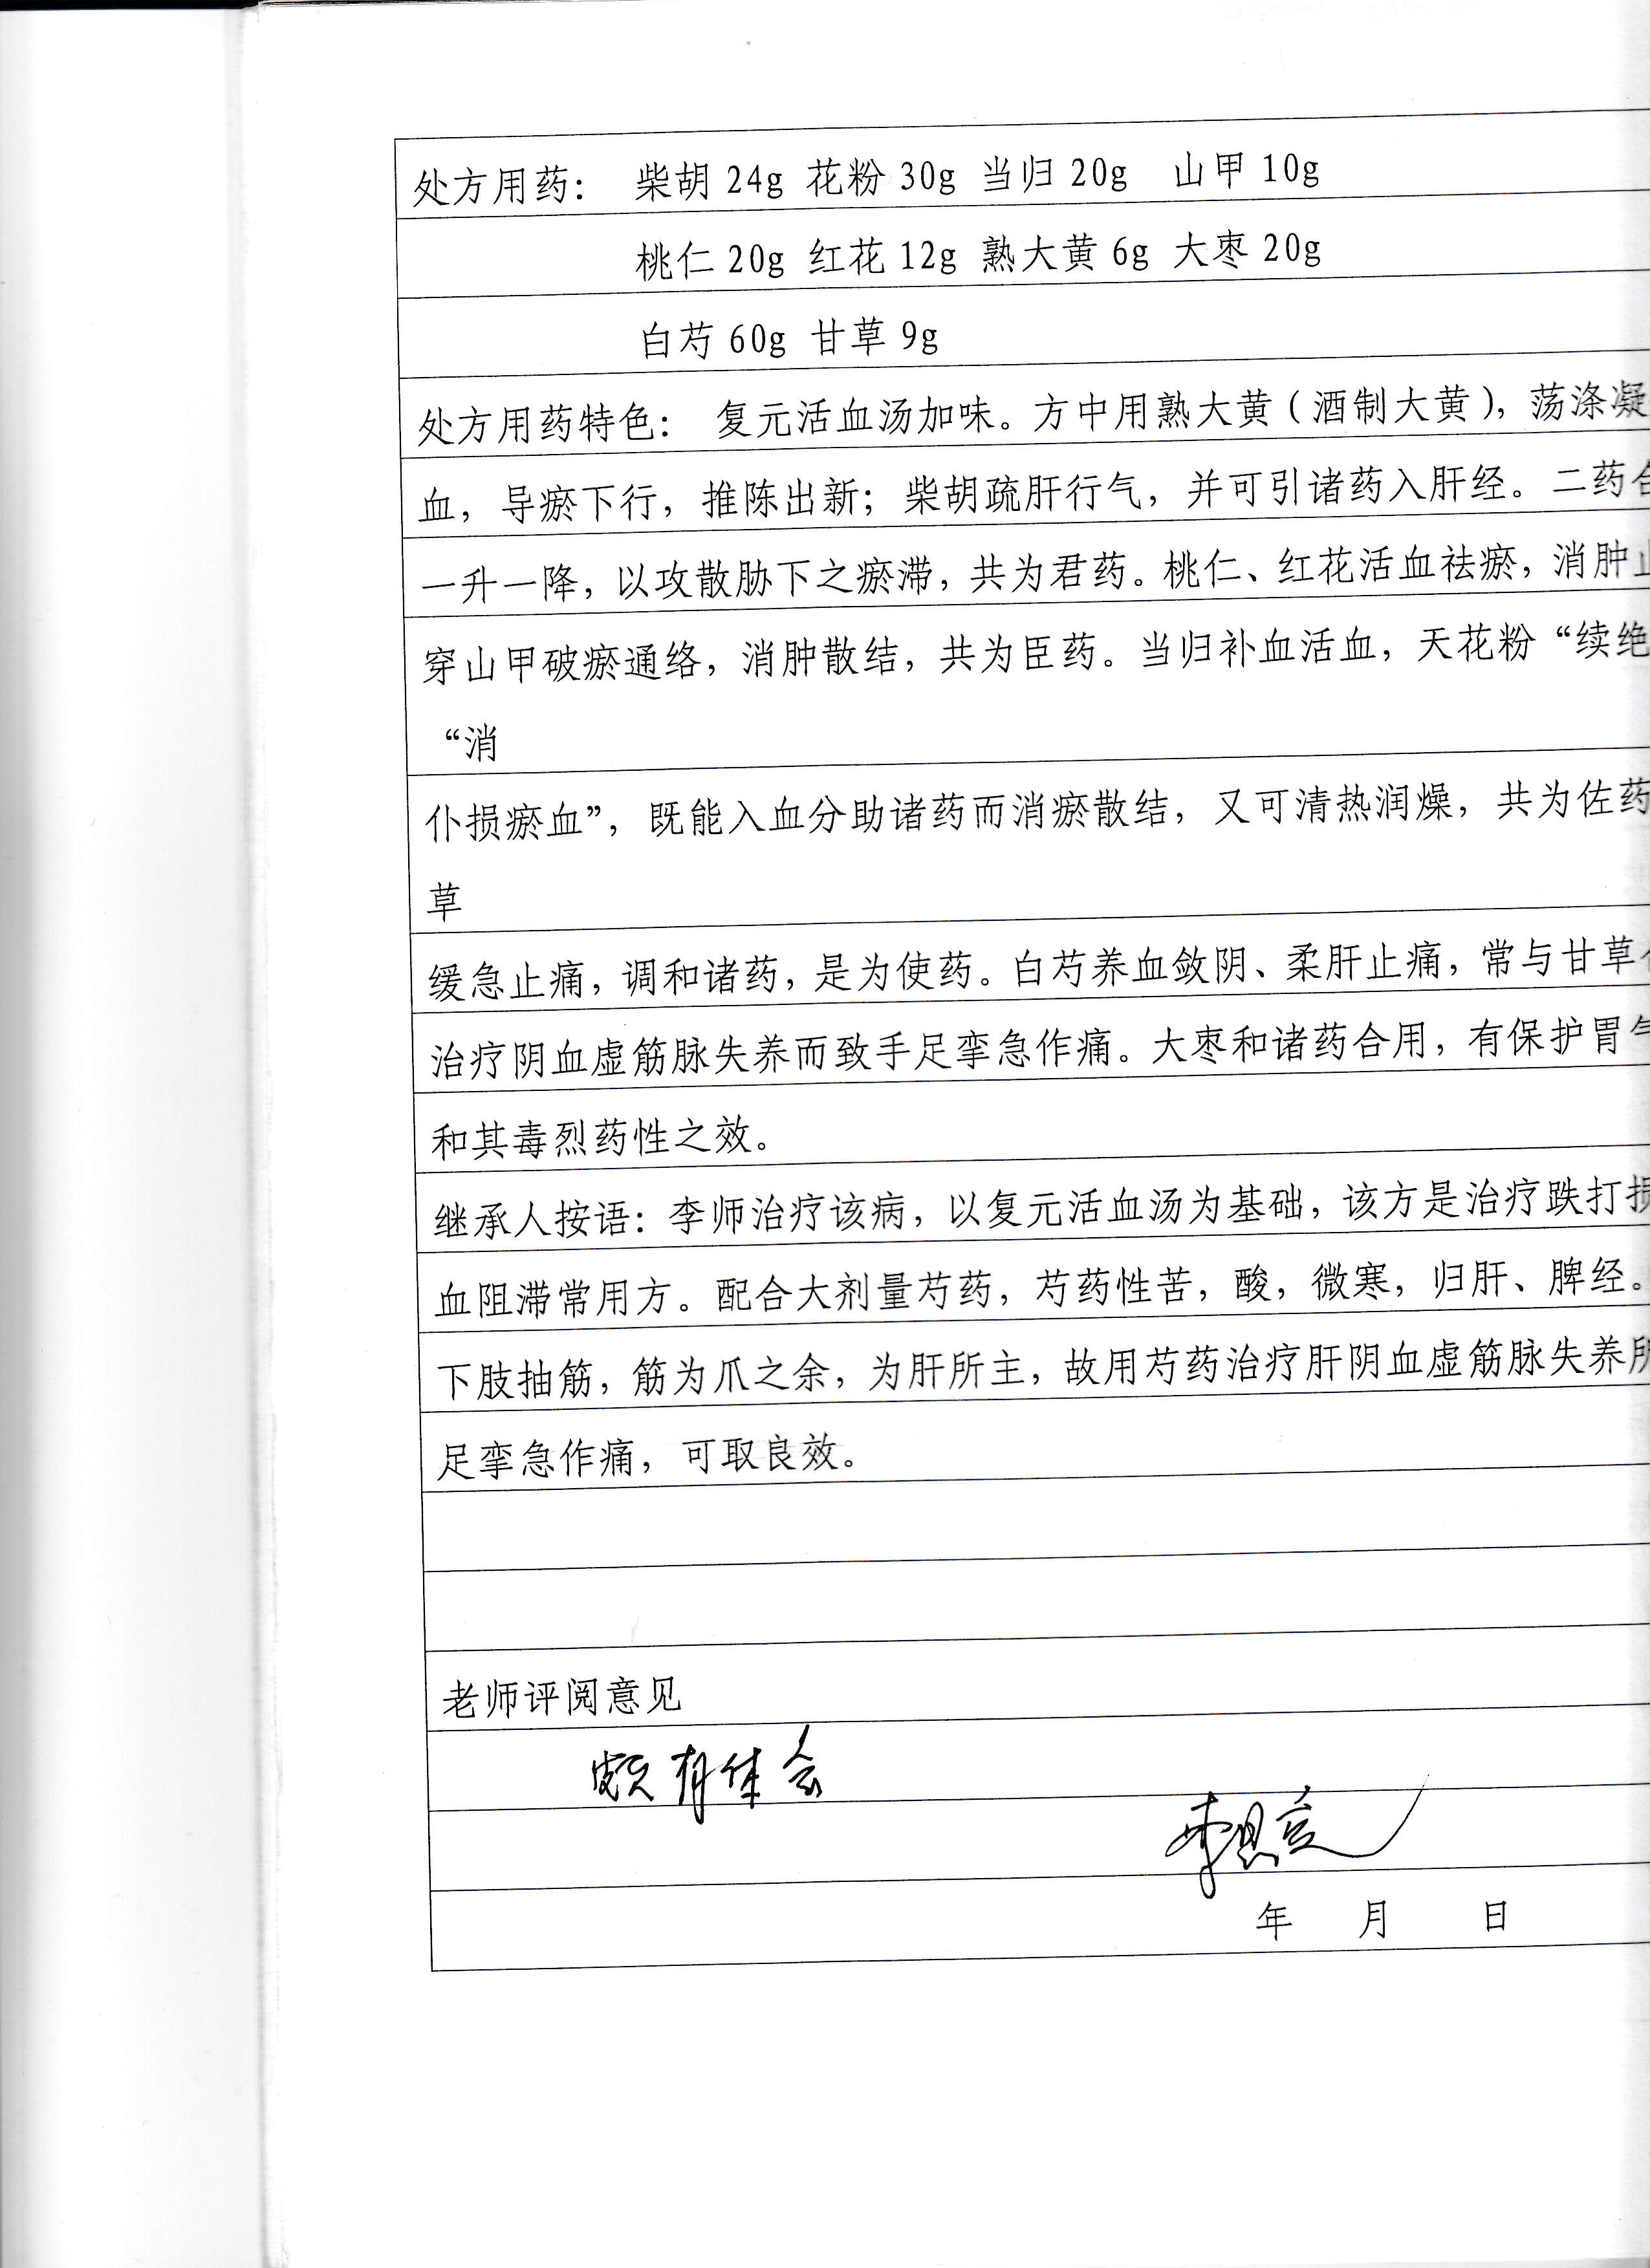 处方用药： 柴胡 24g 花粉 30g 当归 20g 山甲 10g
桃仁 20g 红花 12g 熟大黄 6g 大枣 20g
白芍 60g 甘草 9g
处方用药特色： 复元活血汤加味。方中用熟大黄（酒制大黄），荡涤凝
血，导瘀下行，推陈出新；柴胡疏肝行气，并可引诸药入肝经。二药合
一升一降，以攻散胁下之瘀滞，共为君药。桃仁、红花活血祛瘀，消肿止
穿山甲破瘀通络，消肿散结，共为臣药。当归补血活血，天花粉“续绝
“消
仆损瘀血”，既能入血分助诸药而消瘀散结，又可清热润燥，共为佐药
草
缓急止痛，调和诸药，是为使药。白芍养血敛阴、柔肝止痛，常与甘草
治疗阴血虚筋脉失养而致手足挛急作痛。大枣和诸药合用，有保护胃气
和其毒烈药性之效。
继承人按语：李师治疗该病，以复元活血汤为基础，该方是治疗跌打损
血阻滞常用方。配合大剂量芍药，芍药性苦，酸，微寒，归肝、脾经。
下肢抽筋，筋为爪之余，为肝所主，故用芍药治疗肝阴血虚筋脉失养所
足挛急作痛，可取良效。
老师评阅意见
颇有体会
年 月 日